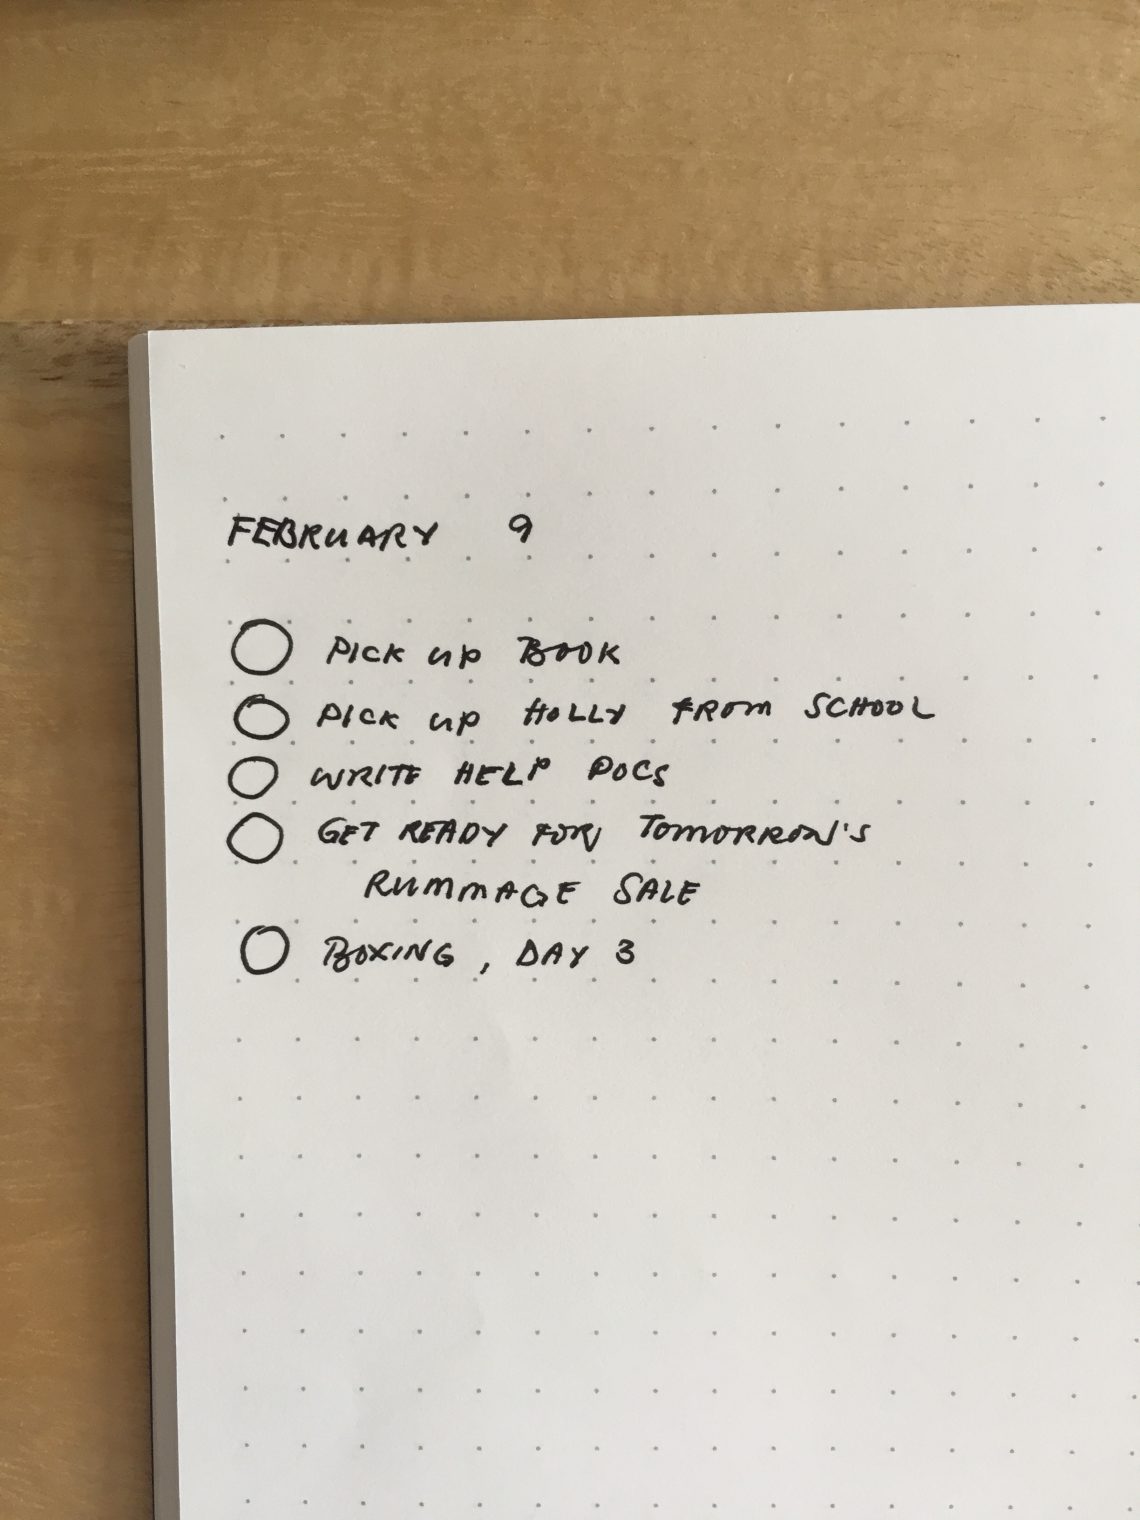 FEBRUARY 9
PICK UP BOOK
PICK UP HOLLY FROM SCHOOL
WRITE HELP DOCS
GET READY FOR TOMORROW'S
RUMMAGE SALE
BOXING, DAY 3